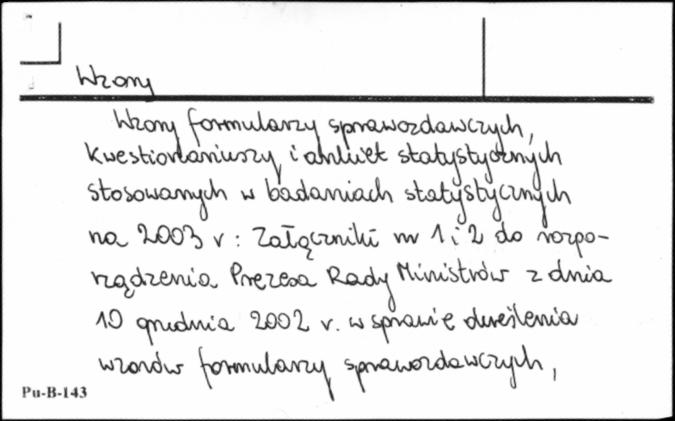 Wzory
Wzory formularzy sprawozdawczych,
kwestionariuszy i ankiet statystycznych
stosowanych w badaniach statystycznych
na 2003 r : Załączniki nr 1 i 2 do rozpo-
rządzenia Prezesa Rady Ministrów z dnia
10 grudnia 2002 r. w sprawie określenia
wzorów formularzy sprawozdawczych,
Pu-B-143